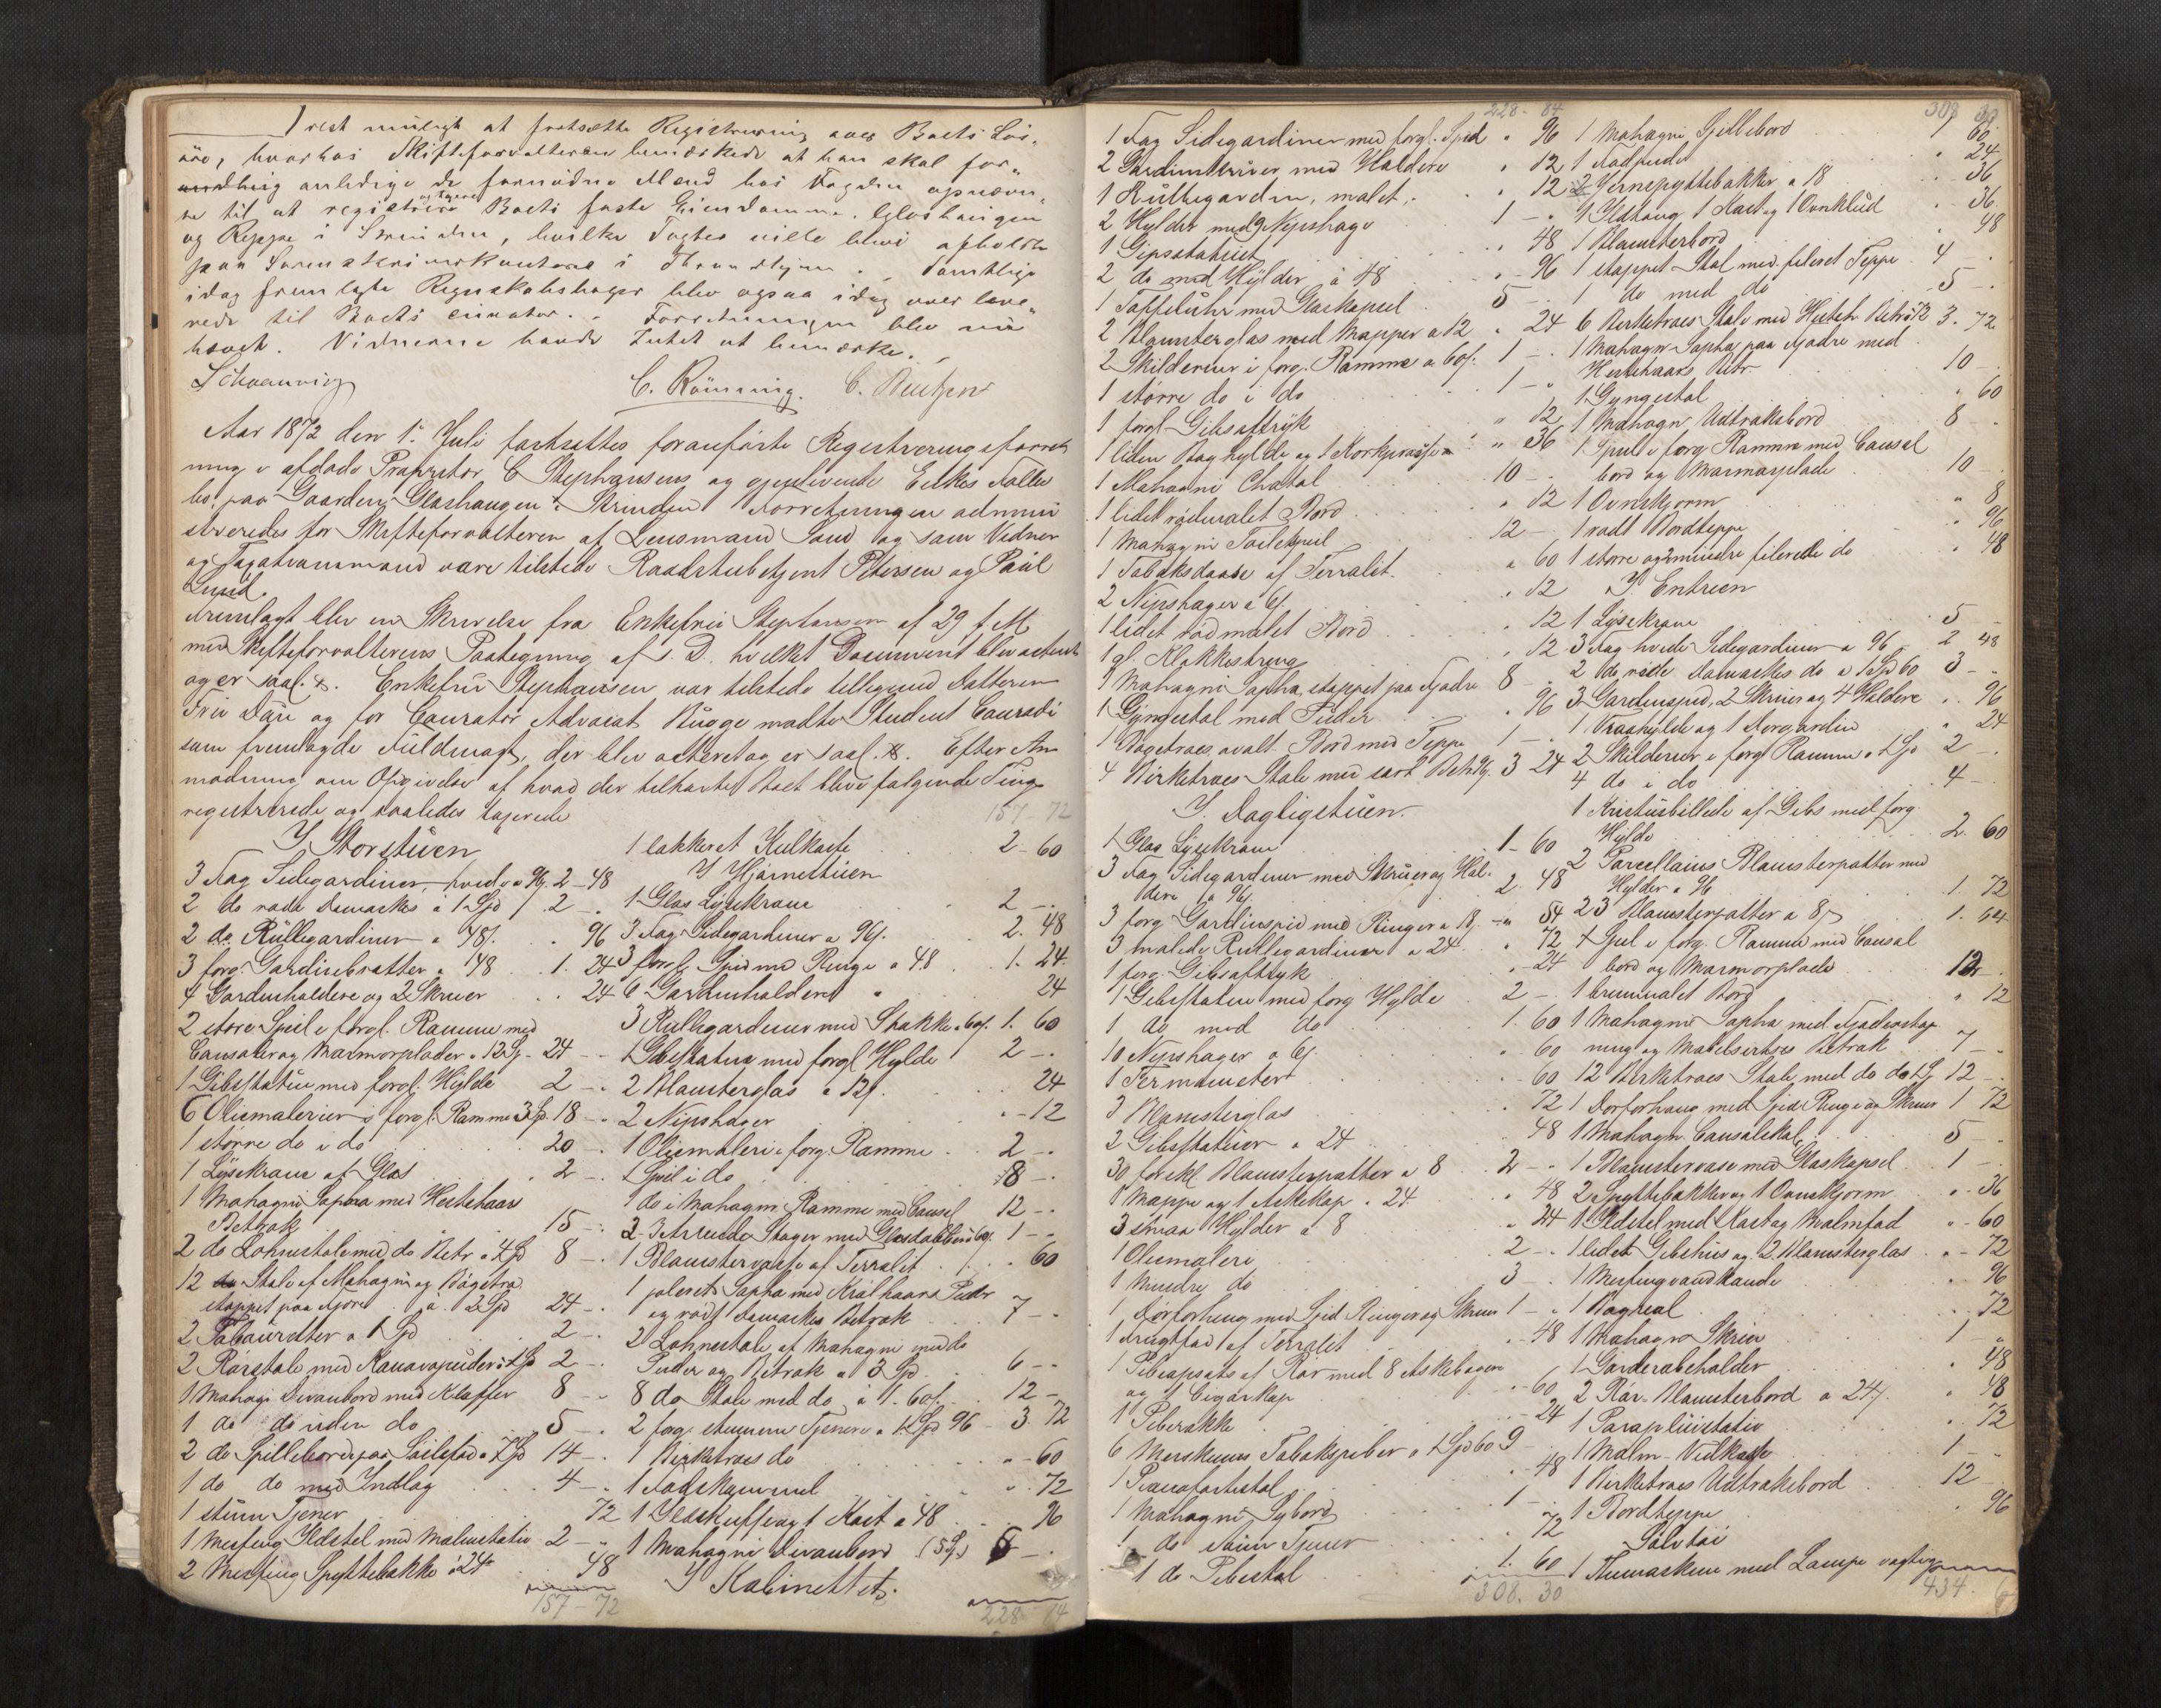 rest muligt at fortsætte Registrering over Boets Løs-
øre, hvorhos Skifteforvalteren bemærkede at han skal for-
anledige de fornødne Mænd hos Fogden opnævn-
te til at registrere og taxere Boets faste Eiendomme. Gloshaugen
og Reppe i Strinden, hvilke Tagter ville blive afholdte
paa Sorenskriverkontoret i Throndhjem. Samtlige
idag fremlagte Regnskabsbøger blev ogsaa idag over leve-
rede til Boets curator. - Forretningen blev nu
hævet. Vidnerne havde Intet at bemærke.
C. Rønning. C. Bentzen
Aar 1872 den 1. Juli fortsattes foranførte Registreringsforret
ning i afdøde Proprietær C Stephansens og gjenlevende Enkes Fælles
bo paa Gaarden Gloshaugen i Strinden Forretningen admini
streredes for Skifteforvalteren af Lensmand Sand og som Vidner
og Tagstvansmænd vare tilstede Raadstubetjent Petersen og Paul
Lund.
Fremlagt blev en Skrivelse fra Enkefru Stephansen af 29 f. M.
med Skifteforvalterens Paategning af s. D. hvilket Document blev acteret
og er saal. Enkefru Stephansen var tilstede tilligemed Datteren
Fru Due og for Curator Advocat Bugge mødte Student Conradi
som fremlagde Fuldmagt, der blev acteret og er saal. Efter An
modning om Opgivelse af hvad der tilhørte Boet bleve følgende Ting
registrerede og saaledes taxerede
I Storstuen
3 Fag Sidegardiner, hvide a 96 2-48
2 do røde Damaskes à 1 Spd 2 -
2 do. Rullegardiner a 48 . 96
3 forg. Gardinebratter a 48 1. 24
4 Gardinholdere og 2 Skruer 24
2 store Speil i forgl. Ramme med
Consoler og Marmorplader a 12 Sp - 24 -
1 Gibsstatue med forgl. Hylde 2 -
6 Oliemalerier i forgl. Ramme 3 Sp. 18 -
1 større do i do 20 -
1 Lysekrone af Glas 2 -
1 Mahagni Sopha med Hestehaar
Betræk 15 -
2 do Lohnestole med do Betr. a 4 Spd 8 -
12 Stole af Mahagni og Bøgetræ
stoppet paa Fjære à 2 Spd 24 -
2 Tabouretter a 1 Spd 2 -
2 Rørstole med Kanavapuder a 1 Spd 2 -
1 Mahagni Divanbord med Klaffer 8 -
1 do do uden do 5 -
2 do Spillebord paa Søilefod a 7 Spd 14 -
1 do do med Indlag 4 -
1 stum Tjener 72
1 Messing Ildstel med Malmstativ 2 -
2 Messing Spyttebakke à 24 48
157-72
157-72
1 lakkeret Kulkasse 2-60
I Hjørnestuen
1 Glas Lysekrone 2 -
3 Fag Sidegardiner a 96 2. 48
3 forgl. Spid med Ringe a 48 1. 24
6 Gardinholdere 24
3 Rullegardiner med Stakke a 60 1. 60
1 Gibsstatue med forgl Hylde 2 -
2 Blomsterglas a 12 24
2 Nipshager - 12
1 Oliemaleri i forg. Ramme 2 -
1 Speil i do 8 -
1 do i Mahagni Ramme med Consol 12 -
1 Blomstervase af Terralit 60
1 poleret Sopha med Krølhaars Puder
og rødt Damaskes Betræk 7 -
2 Lohnestole af Mahagni med do
Puder og Betræk a 3 Spd 6 -
8 do Stole med do à 1. 60 12 -
2 forg. stumme Tjenere a 1 Spd 96 - 3. 72
1 Birketræs do - 60
1 Fodskammel 72
1 Ildskuffe og 1 Kost a 48 96
1 Mahagni Divanbord 5 -
I Kabinettet.
228 84
228 - 84
1 Fag Sidegardiner med forgl. Spid 96
2 Gardinskruer med Holdere 12
1 Rullegardin, malet 12
2 Hylder med 2 Nipshage 1 -
1 Gipsstatuet 48
2 do med Hylder à 48 96
1 Taffeluhr med Glaskapsel 5 -
2 Blomsterglas med Mapper a 12 24
2 Skilderier i forg. Ramme a 60 1 -
1 større do i do 1 -
1 forgl. Gibsaftryk 12
1 liden Boghylde og 1 Korkpresse 36
1 Mahagni Chatol 10 -
1 lidet rødmalet Bord 12
1 Mahagni Toiletspeil 12 -
1 Tobaksdaase af Terralit 60
2 Nipshager a 6 12
1 lidet rødmalet Bord 12
1 gl. Klokkestreng 12
1 Mahagni Sopha, stoppet paa Fjædre 8 -
1 Gyngestol med Puder 96
1 Bøgetræs ovalt Bord med Teppe 1 -
4 Birketræs Stole med sort Betr. 3 24
I Dagligstuen.
1 Glas Lysekrone 1-60
3 Fag Sidegardiner med Skruer og Hol-
dere a 96 2. 48
3 forg Gardinspid med Ringer a 18 54
3 malede Rullegardiner a 24 72
1 forg. Gibsaftryk 24
1 Gibsstatue med forg Hylde 2 -
1 do med do 1. 60
10 Nipshager a 6 60
1 Termometer 60
3 Blomsterglas 72
2 Gibsstatuer a 24 48
30 forskl Blomsterpotter a 8 2 -
1 Mappe og 1 Askekop a 24 48
3 smaa Hylder a 8 24
1 Oliemaleri 2 -
1 Mindre do 3 -
1 Dørforheng med Spid Ringer og Skruer 1 -
1 Frugtfad af Terralit 48
1 Pibeopsats af Rør med 8 Askebægere
og 1 Cigarkop 60
1 Piberække 24
6 Merskums Tobakspiber a 1 Spd 60 9 -
1 Pianofortestol 48
1 Mahagni Sybord 1 -
1 do stum Tjener 72
1 do Pibestol 1. 60
308. 30
308 30
1 Mahagni Spillebord 60
1 Fodpude 24
2 Jernspyttebakker a 18 36
1 Ildtang 1 Kost og 1 Ovnklud 36
1 Blomsterbord 48
1 stoppet Stol med fileret Teppe 4 -
1 do med do 5 -
6 Birketræs Stole med Hesteh Betræk 3. 72
1 Mahagni Sopha paa Fjædre med
Hestehaars Betr. 10 -
1 Gyngestol 60
1 Mahagni Udtræksbord 8 -
1 Speil i forg Ramme med Consol
bord og Marmorplade 10 -
1 Ovnskjerm 8
1 rødt Bordteppe 96
1 større og 2 mindre filerede do 48
I Entreen
1 Lysekrone 5 -
3 Fag hvide Sidegardiner a 96 2 48
2 do røde Damaskes do a 1 Spd 60 3 -
3 Gardinspid, 2 Skruer og 4 Holdere 96
1 Vraahylde og 1 Forgardin 24
2 Skilderier i forg Ramme a 1 Spd 2 -
4 do i do 4 -
1 Kristusbillede af Gibs med forg
Hylde 2. 60
2 Porcellains Blomsterpotter med
Hylder a 96 1. 72
23 Blomsterpotter a 8 1. 64
1 Speil i forg. Ramme med Consol
bord og Marmorplade 12 -
1 brunmalet Bord 12
1 Mahagni Sopha med Fjæderstop
ning og Betræk 7 -
12 Birketræs Stole med do do 1 Sp 12 -
1 Dørforheng med Spid Ringe og Skruer 1 72
1 Mahagni Consolskab 5 -
1 Blomstervase med Glaskapsel 1 -
2 Spyttebakker og 1 Ovnskjerm 36
1 Ildstel med Kost og Malmfod 60
1 lidet Gibshus og 2 Blomsterglas 72
1 Messingvandkande 96
1 Bogreol 72
1 Mahagni Skrin 1 -
1 Garderobeholder 48
2 Rør-Blomsterbord a 24 48
1 Paraplüstativ 72
1 Malm-Vedkasse 1 -
1 Birketræs Udtræksbord 12 -
1 Bordteppe 96
Sølvtøi
1 Themaskine med Lampe
434.